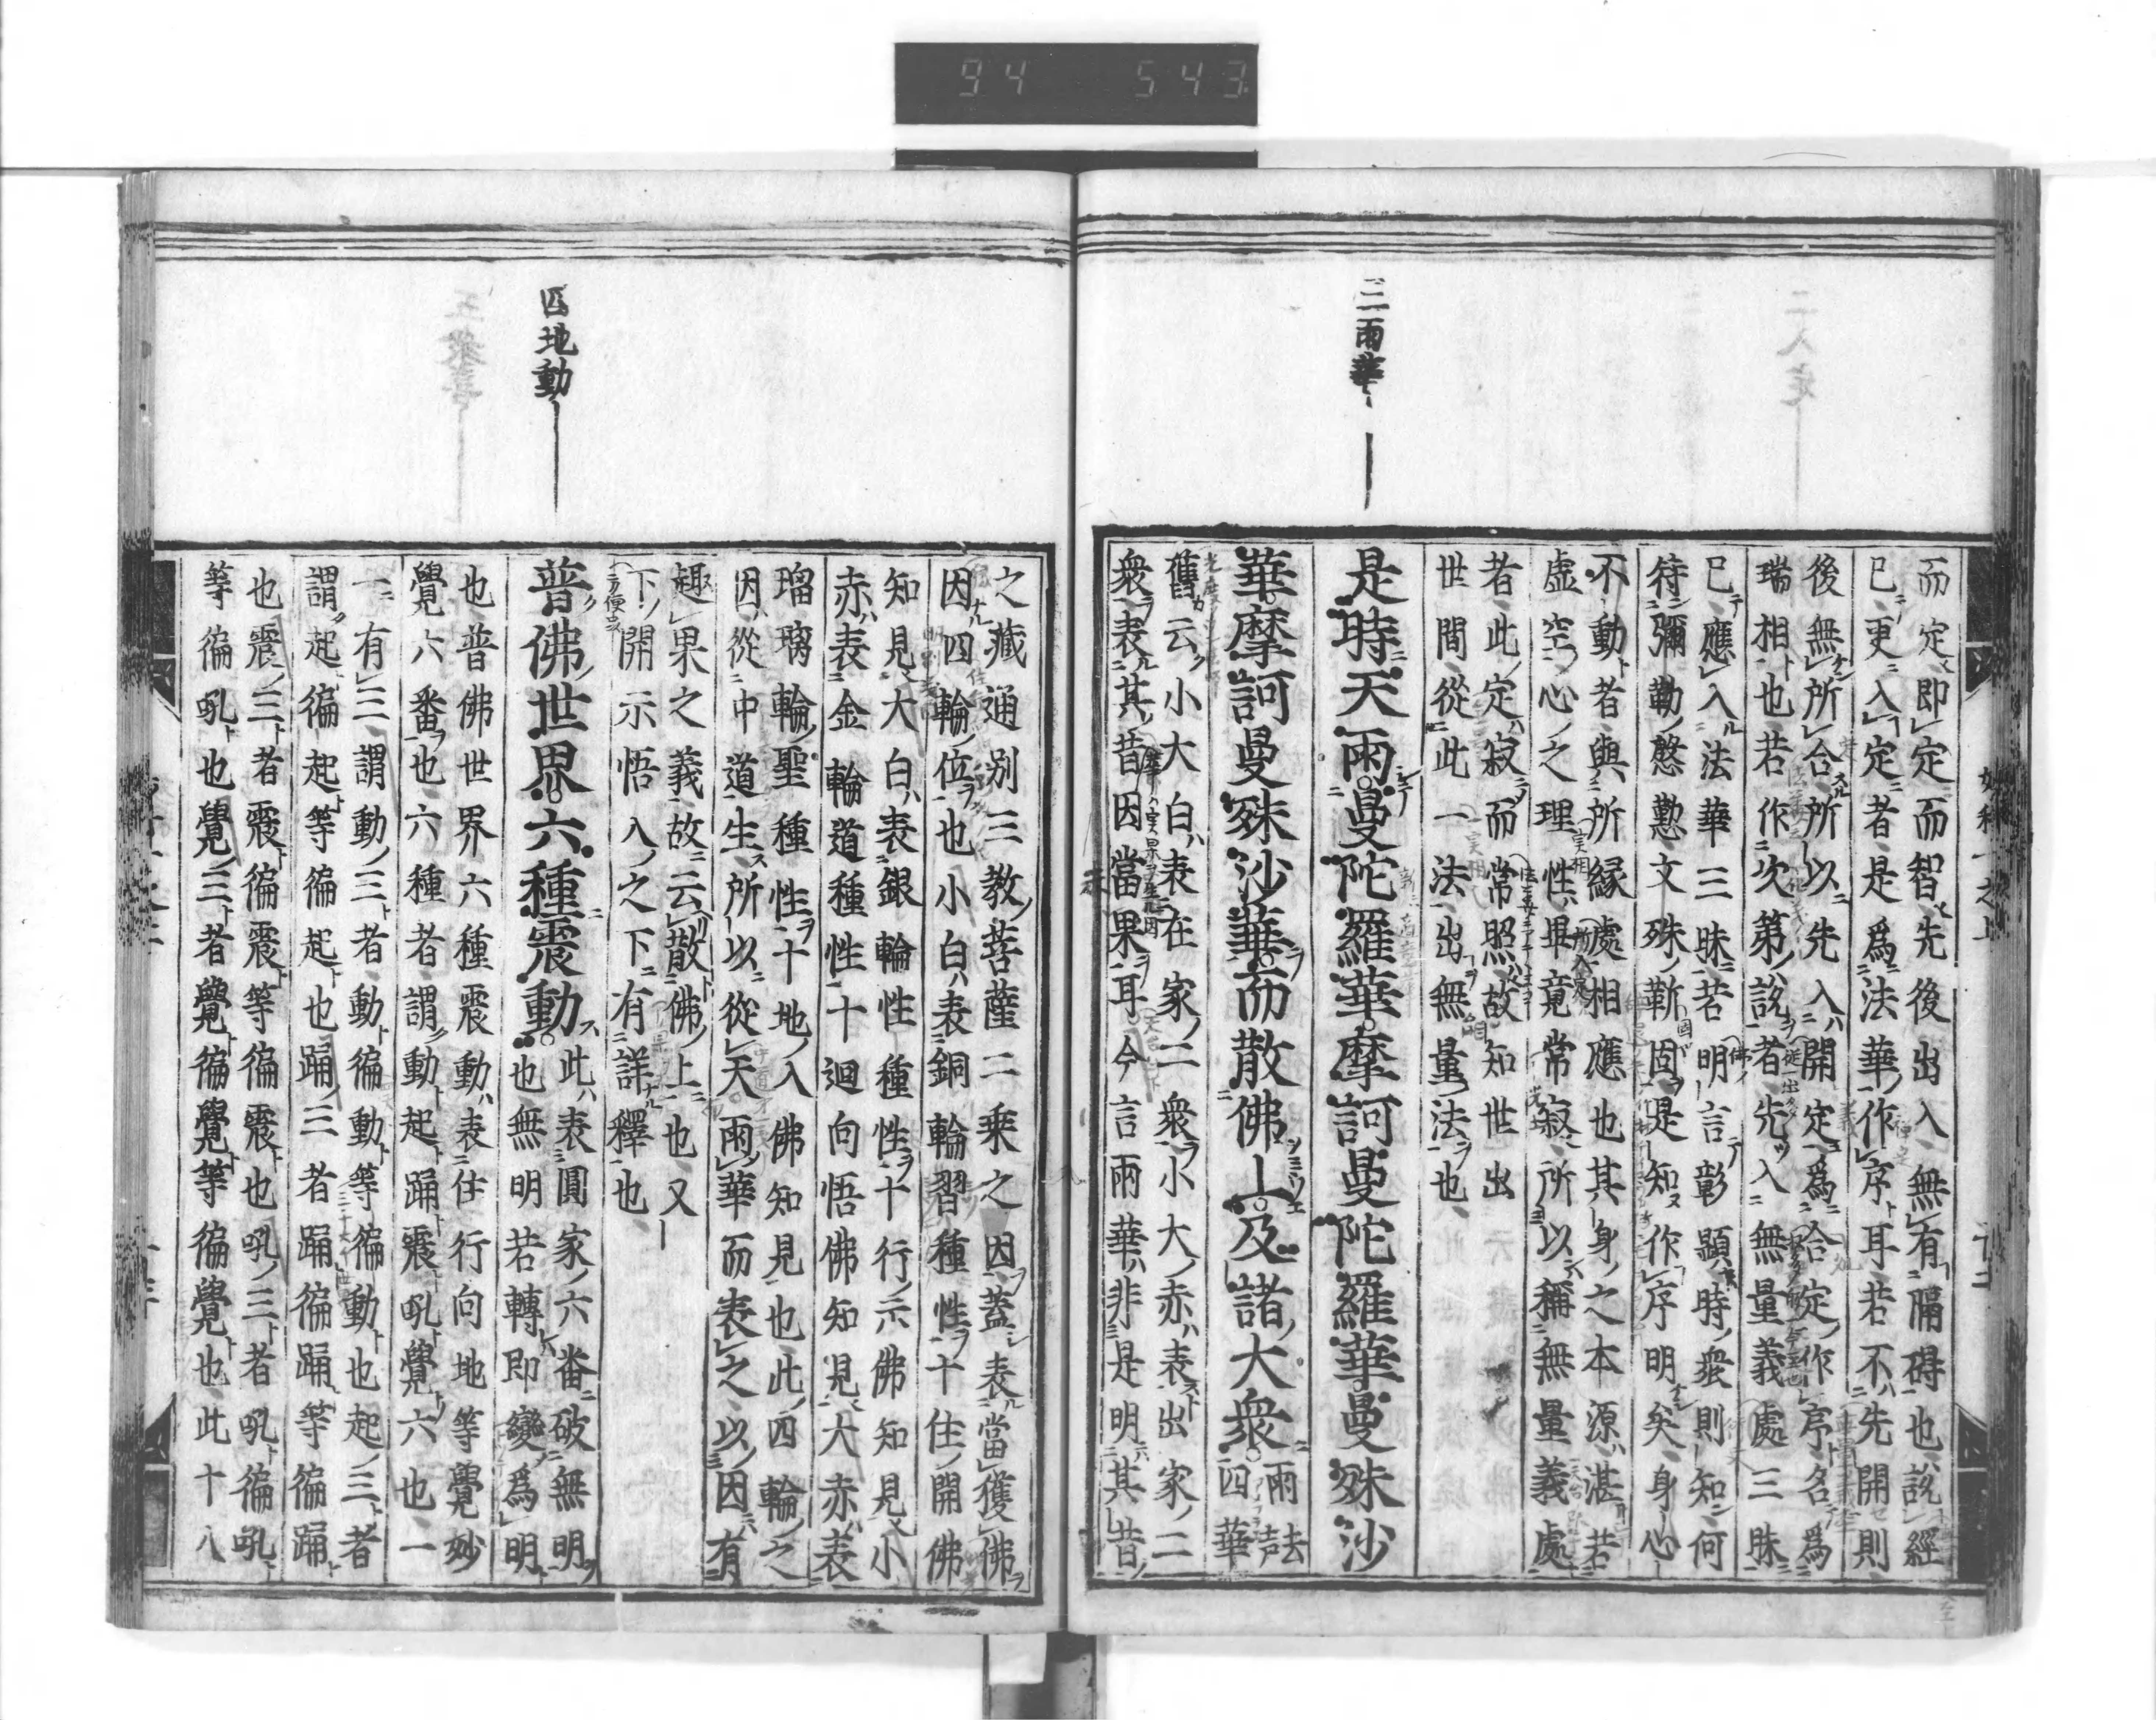 94 543
三雨華
而定即定而智先後出入無有隔碍也説經
已更入定者是爲法華作序耳若不先開則
後無所合所以先入開定爲合定作序名爲
瑞相也若作次第説者先入無量義處三昧
已應入法華三昧若明言彰顯時衆則知何
待彌勒慇懃文殊靳固是知作序明矣身心
不動者與所縁處相應也其身之本源湛若
虚空心之理性畢竟常寂所以稱無量義處
者此定寂而常照故知世出
世間從此一法出無量法也
是時天雨曼陀羅華摩訶曼陀羅華曼殊沙
華摩訶曼殊沙華而散佛上及諸大衆
雨去声
四華
舊云小大白表在家二衆小大赤表出家二
衆表其昔因當果耳今言雨華非是明其昔
四地動
之藏通别三教菩薩二乘之因蓋表當獲佛
因四輪位也小白表銅輪習種性十住開佛
知見大白表銀輪性種性十行示佛知見小
赤表金輪道種性十迴向悟佛知見大赤表
瑠璃輪聖種性十地入佛知見也此四輪之
因從中道生所以從天雨華而表之以因有
趣果之義故云散佛上也又
下開示悟入之下有詳釋也
普佛世界六種震動
此表圓家六番破無明
也無明若轉即變爲明
也普佛世界六種震動表住行向地等覺妙
覺六番也六種者謂動起踊震吼覺六也一
一有三謂動三者動徧動等徧動也起三者
謂起徧起等徧起也踊三者踊徧踊等徧踊
也震三者震徧震等徧震也吼三者吼徧吼
等徧吼也覺三者覺徧覺等徧覺也此十八